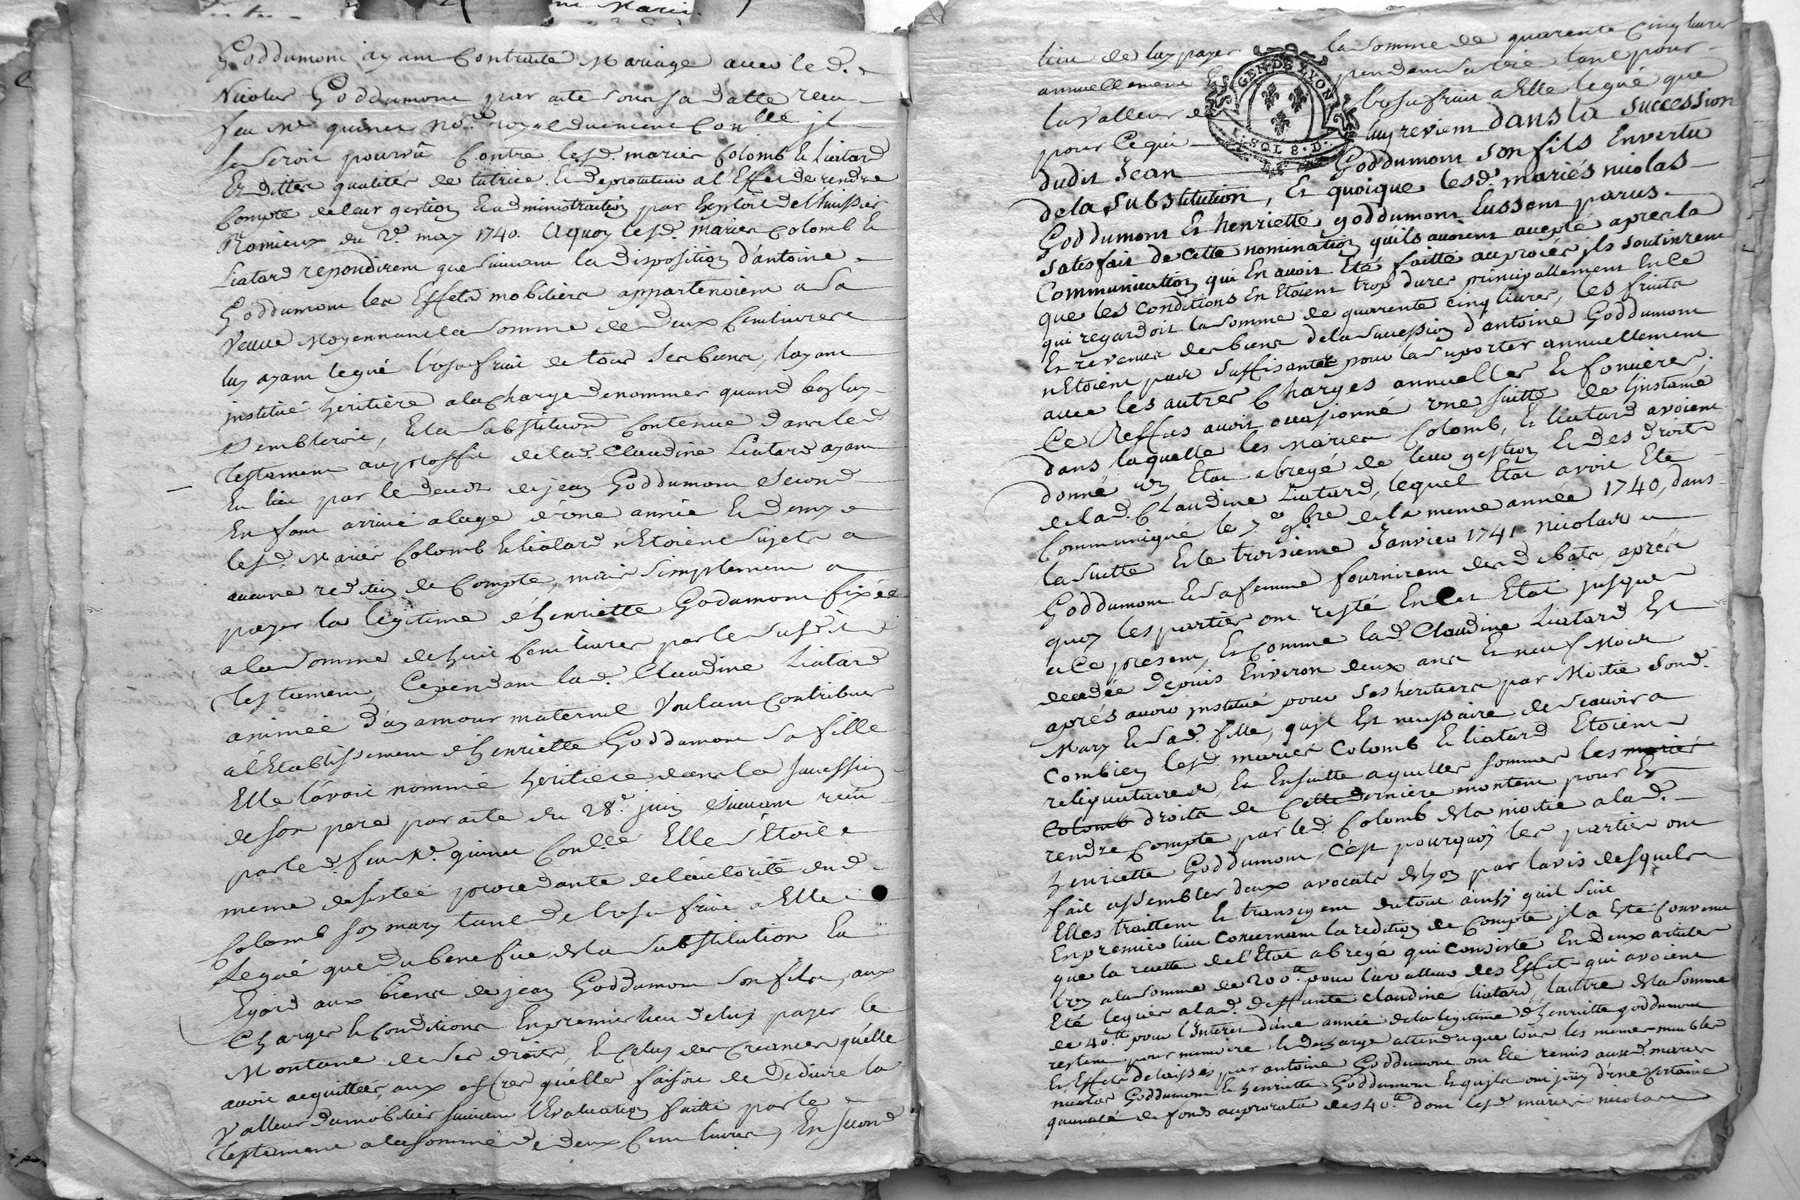 Goddumont ayant Contracté Mariage avec led.
Nicolas Goddumont par acte sous sa datte reçu
feu Me quinet No.re royal duement Con.llé jl
se seroit pourvû Contre lesd. mariés Colomb et Liatard
Es dittes qualités de tutrice et de protuteur a l'Effet de rendre
Compte de leur gestion et administration par Exploit de l'huissier
Romieux du 2e may 1740. A quoy lesd. mariés Colomb et
Liatard repondirent que suivant la disposition d'antoine
Goddumont les Effets mobiliers appartenoient a sa
Veuve Moyennant la somme de deux Cent livres
luy ayant legué l'usufruit de tous ses biens, layant
institué heritière a la charge de nommer quand bon luy
sembleroit, Et la substitution Contenue dans led.
Testament au proffit de lad. Claudine Liatard ayant
Eu lieu par le deces de jean Goddumont second
Enfant arrivé a l'age d'une année et demy
lesd. Mariés Colomb et Liatard n'Etoient sujets a
aucune redition de Compte, mais simplement a
payer la légitime d'henriette Godumont fixée
a la somme de huit Cent livres par le susdit
Testament, Cependant lad. Claudine Liatard
animée d'un amour maternel Voulant Contribuer
a l'Etablissement d'henriette Goddumont sa fille
Elle l'avoit nommé heritière dans la succession
de son pere par acte du 28e juin suivant reçu
par led. feu Me quinet Con.llé Elle s'Etoit
meme desistée procedante de l'authorité dud.
Colomb son mary tant de l'usufruit a Elle
Legué que du benefice de la substitution Eu
Egard aux biens de jean Goddumont son fils, aux
Charges et Conditions En premier lieu de luy payer le
Montant de ses droits, et Celuy des Creances qu'elle
avoit acquittées, aux offres qu'elle faisoit de deduire la
Valleur du mobilier suivant l'Evaluation faitte par le
Testament a la somme de deux Cent livres, En second
lieu de luy payer la somme de quarente Cinq livres
annuellement pendant sa vie tant pour
la valleur de l'usufruit a Elle legué que
pour Ce qui luy revient dans la succession
dudit Jean Goddumont son fils En vertu
de la substitution, Et quoique lesd. mariés nicolas
Goddumont Et henriette goddumont Eussent parus
satisfait de cette nomination qu'ils avoient accepté apres la
Communication qui En avoit Eté faitte au procés jls soutinrent
que les conditions En Etoient trop dures principallement En Ce
qui regardoit la somme de quarente cinq livres, les fruits
Et revenus des biens de la succession d'antoine Goddumont
n'Etoient pas suffisants pour la suporter annuellement
avec les autres Charges annuelles et foncieres,
Ce Reffus avoit occasionné une suitte de l'instance
dans laquelle les Mariés Colomb, et Liatard avoient
donné un Etat abregé de leur gestion et des droits
de lad. Claudine Liatard, lequel Etat avoit Eté
Communiqué le 7e 9bre de la meme année 1740, dans
la suitte et le troisieme Janvier 1741 Nicolas
Goddumont et sa femme fournirent des debats, après
quoy les parties ont resté En cet Etat jusques
a Ce present, Et comme lad. Claudine Liatard Est
decedée depuis Environ deux ans Et neuf Mois
aprés avoir institué pour ses heritiers par Moitié sond.
Mary et sad. fille, qu'il Est necessaire de scavoir a
Combien lesd. mariés Colomb et Liatard Etoient
reliquataires, et Ensuitte a quelles sommes les mariés
Colomb droits de Cette derniere montent pour Et
rendre Compte par led. Colomb de la moitié a lad.
henriette Goddumont, C'est pourquoy les parties ont
fait assembler deux avocats de lyon par lavis desquels
Elles traittent et transigent du tout ainsy qu'il suit
En premier lieu concernant la redition de Compte jl a Eté Convenu
que la recette de l'Etat abregé qui consiste En deux articles
l'un a la somme de 200tt pour la valleur des Effets qui avoient
Eté legués a lad. deffunte Claudine Liatard, l'autre de la somme
de 40tt pour l'Interet d'une année de la legitime d'henriette goddumont
restent pour memoire et decharge attendu que tous les memes meubles
Et Effets delaissés par antoine Goddumont ont Eté remis auxd. mariés
nicolas Goddumont et henriette Goddumont Et qu'ils ont joüy d'une Certaine
quantité de fonds au prorata des 40tt dont lesd. mariés nicolas
GEN. DE LYON
SOL 8. D.